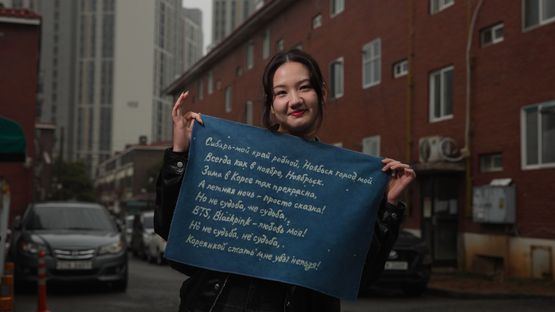 Сибирь-мой край родной, Ноябьск город мой
Всегда как в ноябре, Ноябрьск.
Зима в Корее так прекрасна,
А летняя ночь - просто сказка!
Но не судьба, не судьба,
BTS, Blackpink - любовь моя!
Но не судьба, не судьба,
Кореянкой стать мне увы нельзя!